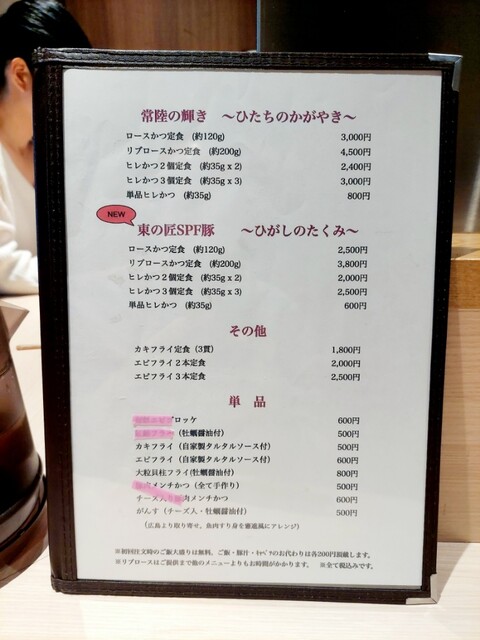 常陸の輝き ～ひたちのかがやき～
ロースかつ定食 (約120g) 3,000円
リブロースかつ定食 (約200g) 4,500円
ヒレかつ２個定食 (約35g x 2) 2,400円
ヒレかつ３個定食 (約35g x 3) 3,000円
単品ヒレかつ (約35g) 800円
NEW
東の匠SPF豚 ～ひがしのたくみ～
ロースかつ定食 (約120g) 2,500円
リブロースかつ定食 (約200g) 3,800円
ヒレかつ２個定食 (約35g x 2) 2,000円
ヒレかつ３個定食 (約35g x 3) 2,500円
単品ヒレかつ (約35g) 600円
その他
カキフライ定食 (3貫) 1,800円
エビフライ２本定食 2,000円
エビフライ３本定食 2,500円
単 品
ロッケ 600円
(牡蠣醤油付) 500円
カキフライ (自家製タルタルソース付) 500円
エビフライ (自家製タルタルソース付) 600円
大粒貝柱フライ(牡蠣醤油付) 800円
メンチかつ (全て手作り) 500円
チーズ入り 肉メンチかつ 600円
がんす (チーズ入・牡蠣醤油付) 500円
(広島より取り寄せ。魚肉すり身を雅趣風にアレンジ)
※初回注文時のご飯大盛りは無料。ご飯・豚汁・ｷｬﾍﾞﾂのお代わりは各200円頂戴します。
※リブロースはご提供まで他のメニューよりもお時間がかかります。 ※全て税込みです。